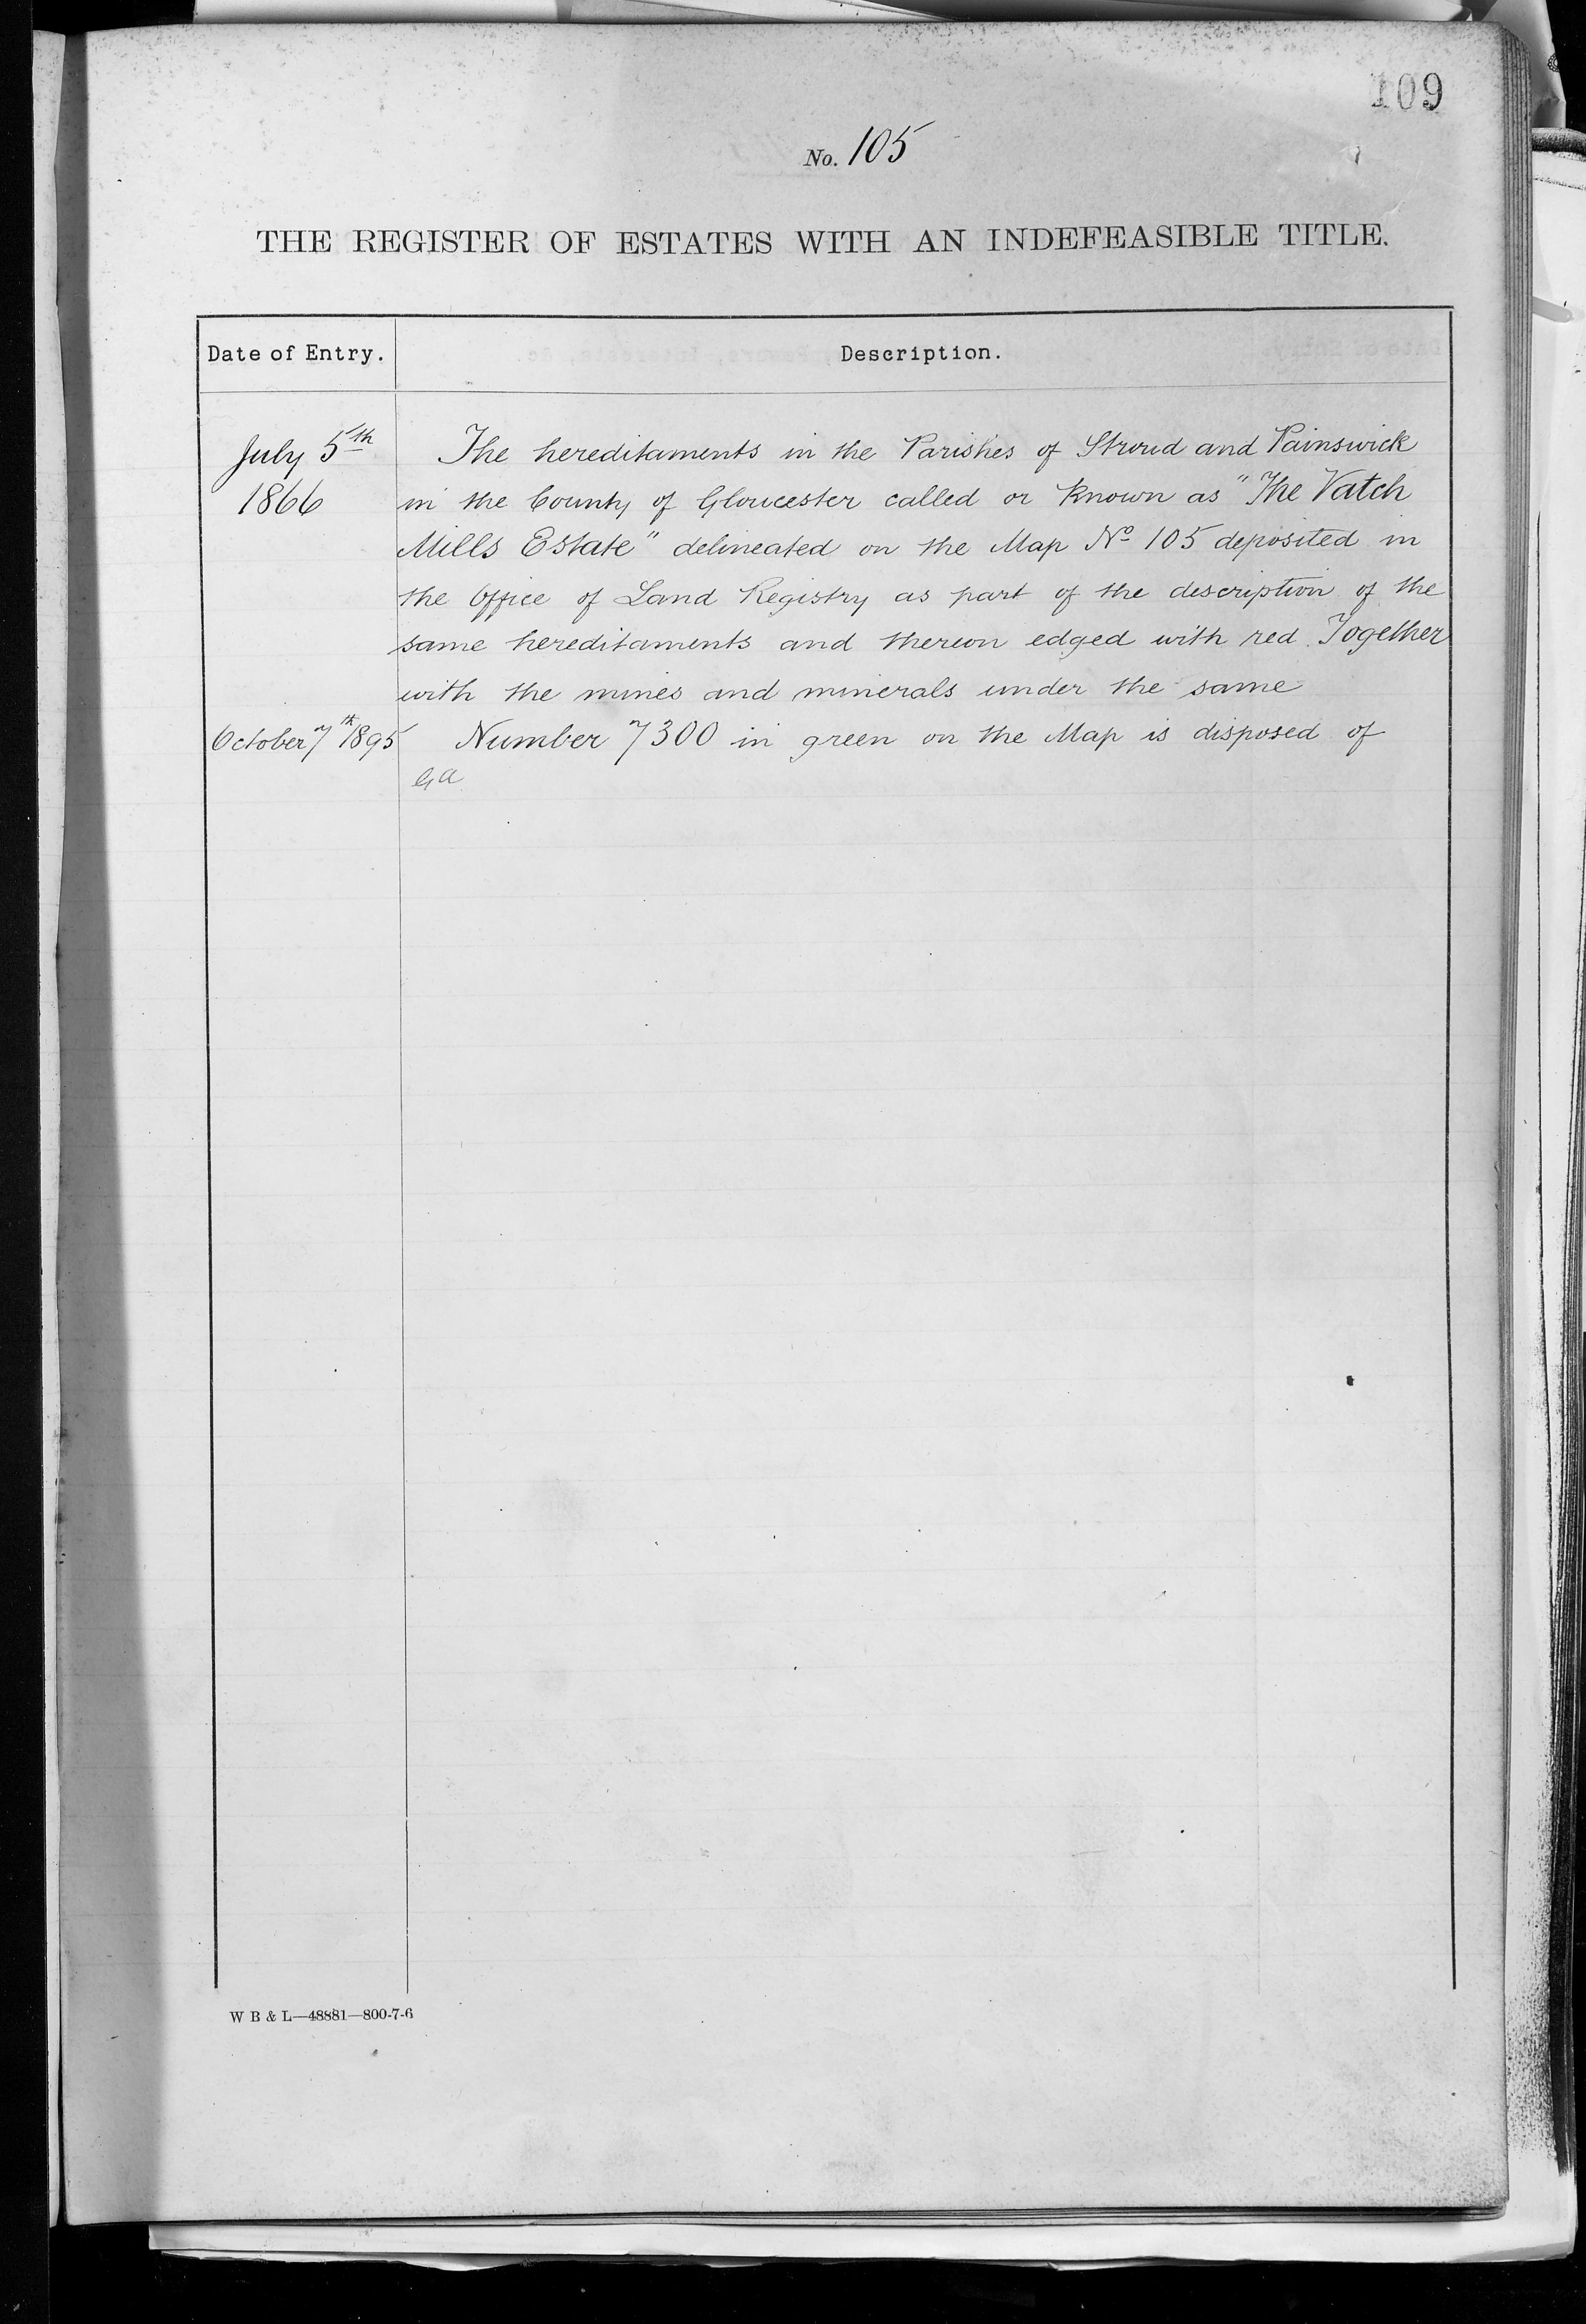 109
No. 105
THE REGISTER OF ESTATES WITH AN INDEFEASIBLE TITLE.
Date of Entry.
Description.
July 5th
1866
The hereditaments in the Parishes of Stroud and Painswick
in the County of Gloucester called or known as "The Vatch
Mills Estate" delineated on the Map No 105 deposited in
the Office of Land Registry as part of the description of the
same hereditaments and thereon edged with red. Together
with the mines and minerals under the same
October 7th 1895
Number 7300 in green on the Map is disposed of
W B & L—48881—800-7-6